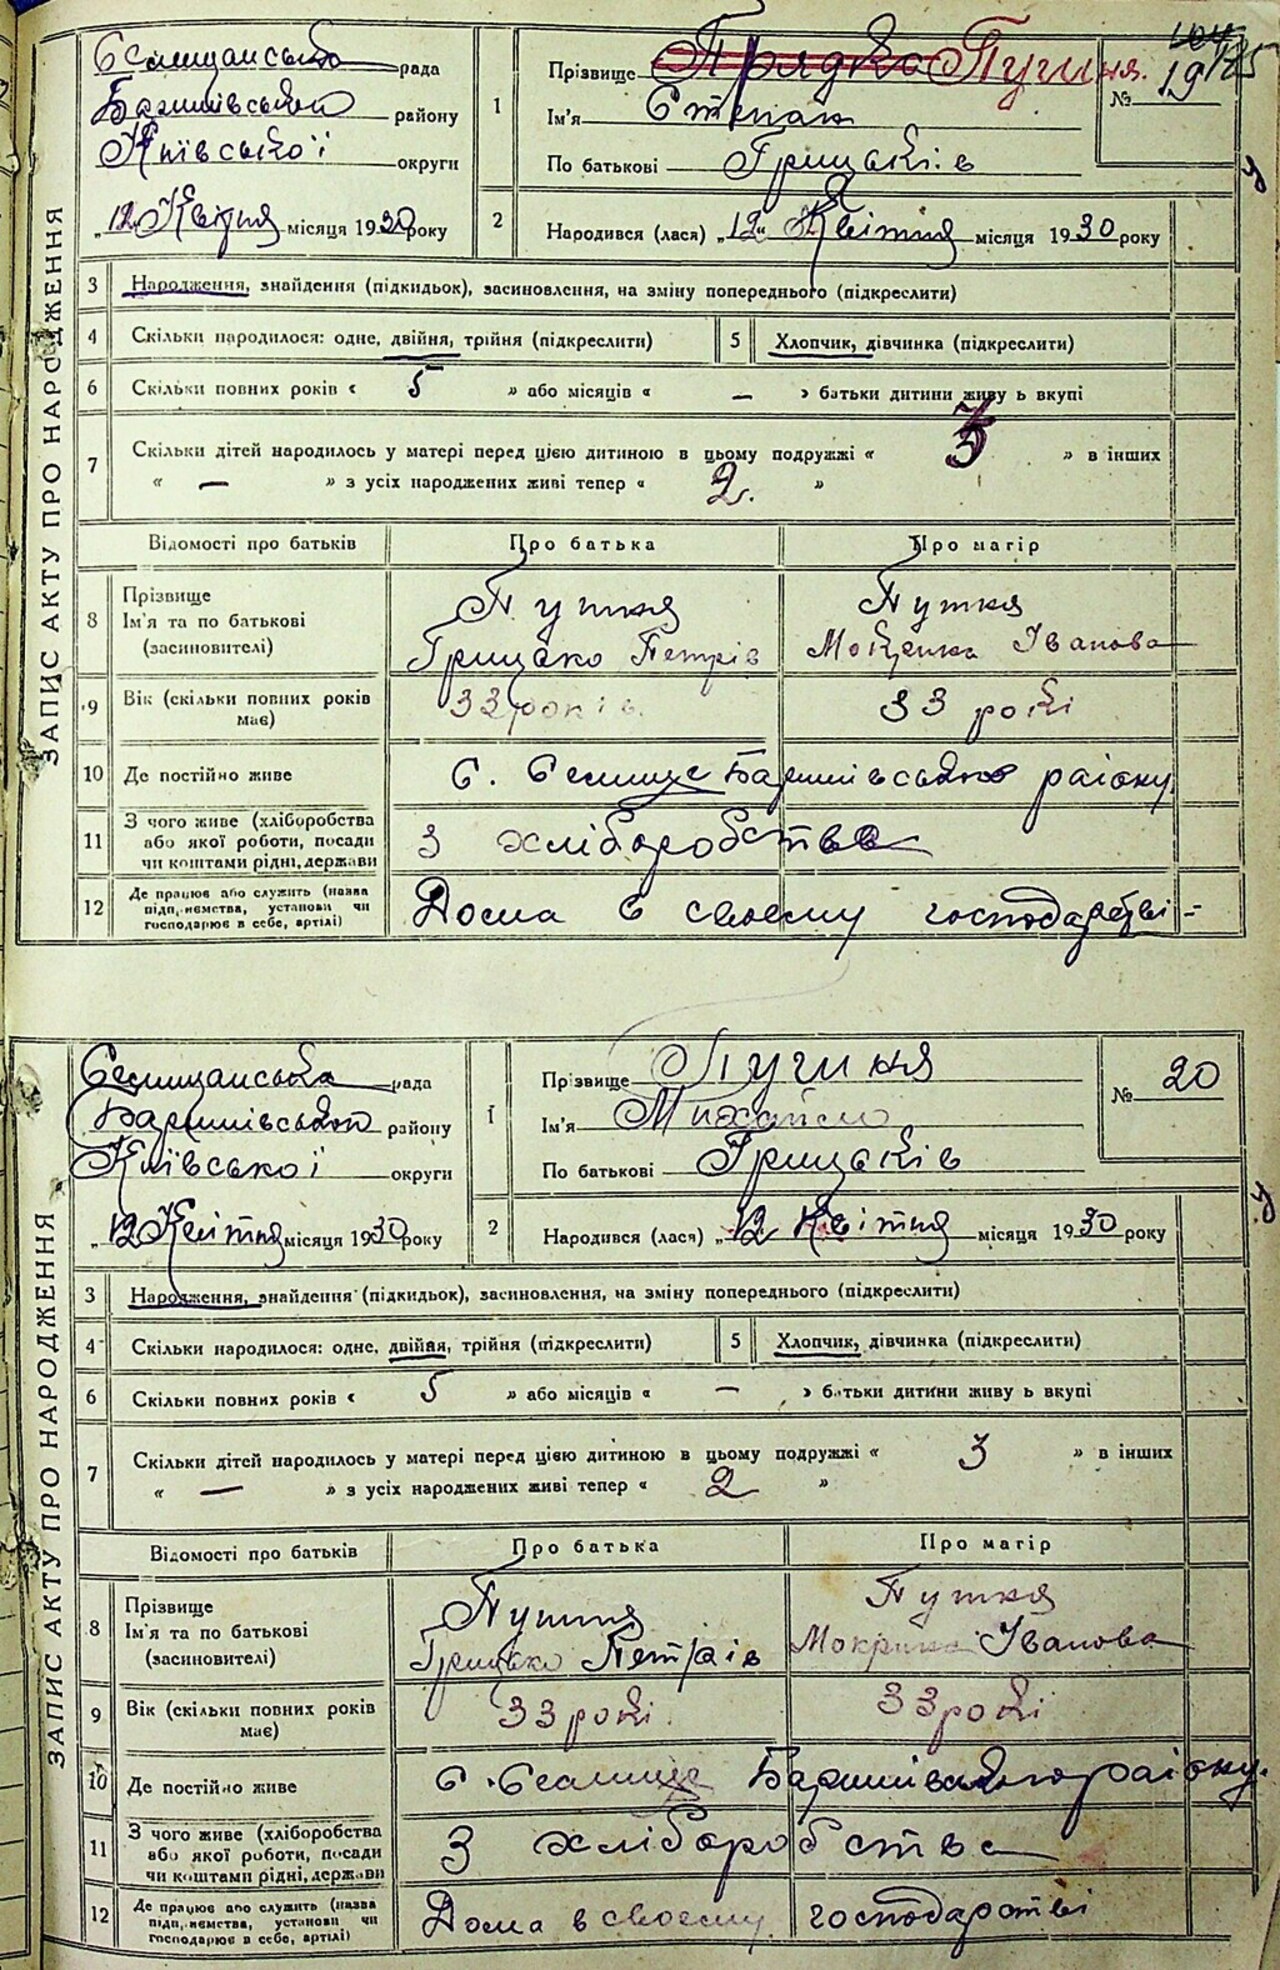 ЗАПИС АКТУ ПРО НАРОДЖЕННЯ
Селищанська рада
Баришівського району
Київської округи
„12„ Квітня місяця 1930 року
1 Прізвище Прядко Пугиня.
Ім'я Степан
По батькові Грицьків
№ 19
2 Народився (лася) „12“ Квітня місяця 1930 року
3 Народження, знайдення (підкидьок), засиновлення, на зміну попереднього (підкреслити)
4 Скільки народилося: одне, двійня, трійня (підкреслити) 5 Хлопчик, дівчинка (підкреслити)
6 Скільки повних років « 5 » або місяців « — » батьки дитини живу ь вкупі
7 Скільки дітей народилось у матері перед цією дитиною в цьому подружжі « 3 » в інших
« — » з усіх народжених живі тепер « 2. »
Відомості про батьків Про батька Про матір
8 Прізвище
Ім'я та по батькові
(засиновителі)
Путня
Грицько Петрів
Путня
Мокрина Іванова
9 Вік (скільки повних років
має)
33 років. 33 рокі
10 Де постійно живе С. Селище Баришівського раіону
11 З чого живе (хліборобства
або якої роботи, посади
чи коштами рідні, держави
З хліборобства
12 Де працює або служить (назва
підприємства, установи чи
господарює в себе, артілі)
Дома в своему господарстві
ЗАПИС АКТУ ПРО НАРОДЖЕННЯ
Селищанська рада
Баришівського району
Київської округи
„12 Квітня місяця 1930 року
1 Прізвище Пугиня
Ім'я Михайло
По батькові Грицьків
№ 20
2 Народився (лася) „12 Квітня місяця 1930 року
3 Народження, знайдення (підкидьок), засиновлення, на зміну попереднього (підкреслити)
4 Скільки народилося: одне, двійня, трійня (підкреслити) 5 Хлопчик, дівчинка (підкреслити)
6 Скільки повних років « 5 » або місяців « — » батьки дитини живу ь вкупі
7 Скільки дітей народилось у матері перед цією дитиною в цьому подружжі « 3 » в інших
« — » з усіх народжених живі тепер « 2 »
Відомості про батьків Про батька Про матір
8 Прізвище
Ім'я та по батькові
(засиновителі)
Путня
Грицько Петрів
Путня
Мокрина Іванова
9 Вік (скільки повних років
має)
33 рокі 33 рокі
10 Де постійно живе С. Селище Баришівського раіону.
11 З чого живе (хліборобства
або якої роботи, посади
чи коштами рідні, держави
З хліборобства
12 Де працює або служить (назва
підприємства, установи чи
господарює в себе, артілі)
Дома в своему господарстві